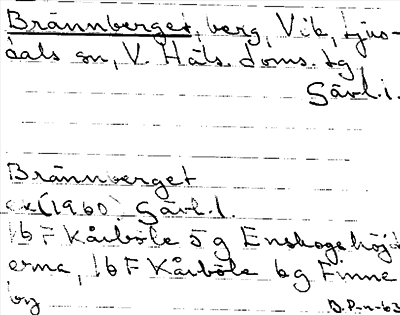 Brännberget, berg, Vik, Ljus-
dals sn, V. Häls. doms. tg
Gävl. l.
Brännberget
ek (1960) Gävl. l.
16 F Kårböle 5 g Enskogshöjd
erna, 16 F Kårböle 6g Finne
by
B.P-n-63